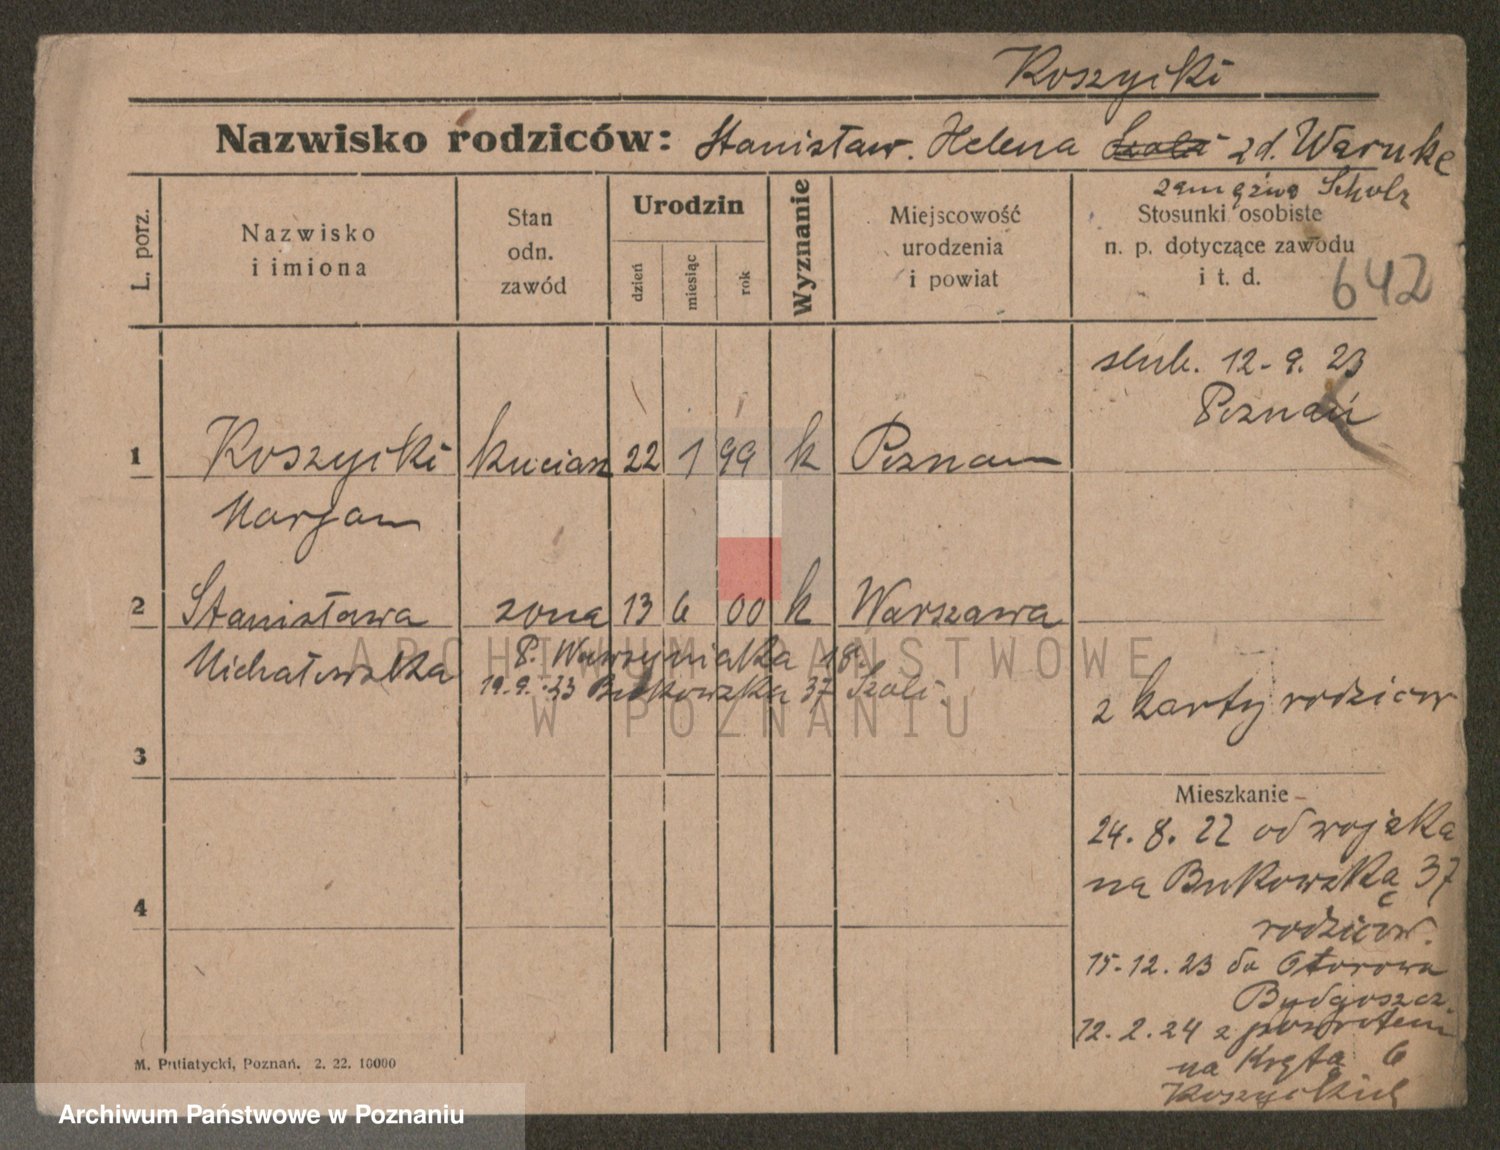 Koszycki
Nazwisko rodziców: Stanisław. Helena zd. Warnke
zamężna Scholz
L. porz.
Nazwisko
i imiona
Stan
odn.
zawód
Urodzin
dzień
miesiąc
rok
Wyznanie
Miejscowość
urodzenia
i powiat
Stosunki osobiste
n. p. dotyczące zawodu
i t. d.
642
ślub. 12-9. 23
Poznań
1 Koszycki 22 1 99 k Poznan
Marjan
2 Stanisława zona 13 6 00 k Warszawa
Michałowska P. Wawrzyniaka 18.
19.9.23 Bukowska 37
z karty rodzicow
3
Mieszkanie
24. 8. 22 od wojska
na Bukowską 37
rodzicow.
4
15-12.23 do Otorowa
Bydgoszcz
12. 2. 24 z powrotem
na Krętą 6
Koszyckich
M. Putiatycki, Poznań. 2. 22. 10000
ARCHIWUM PAŃSTWOWE
W POZNANIU
Archiwum Państwowe w Poznaniu